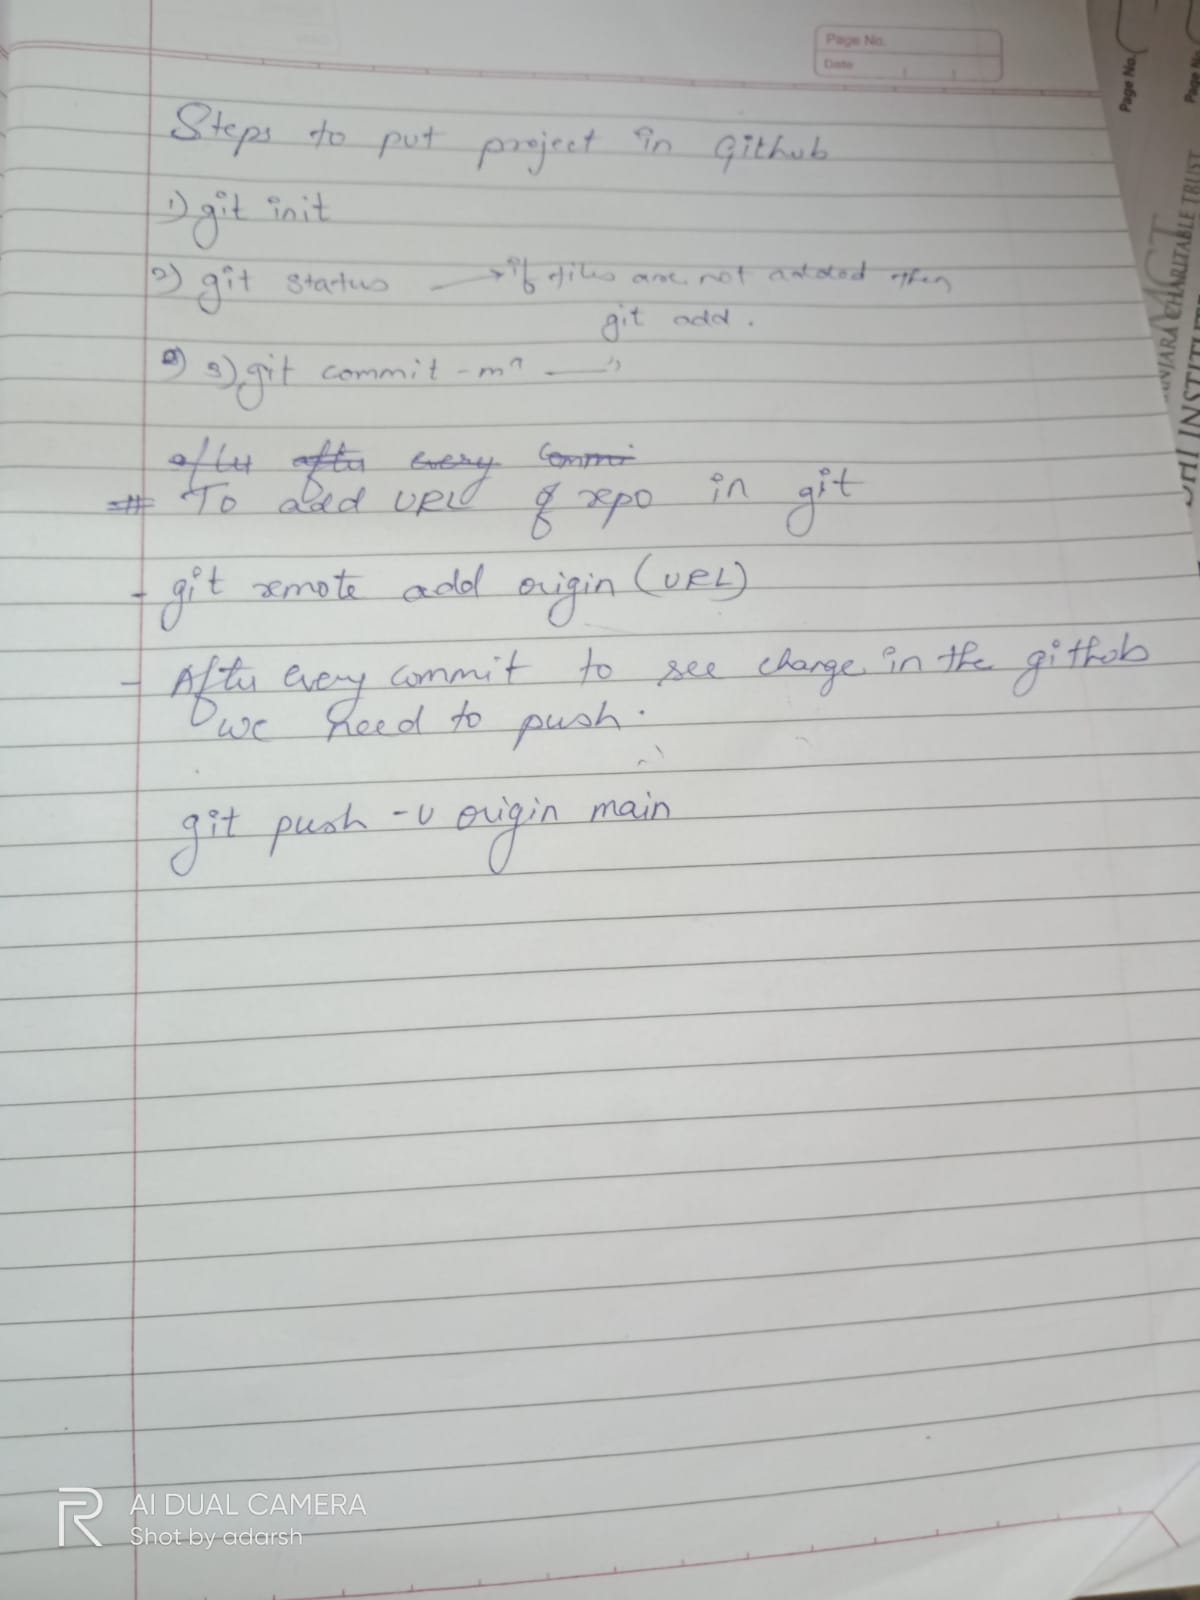 Page No.
Date
Page No.
Page No
Steps to put project in Github
1) git init
2) git status → if files are not added then
git add .
3) git commit -m " — "
after after every Commi
# To add URL of repo in git
- git remote add origin (URL)
- After every commit to see change in the github
we need to push.
git push -u origin main
ANJARA CHARITABLE TRUST
DHI INSTITUTE
AI DUAL CAMERA
Shot by adarsh